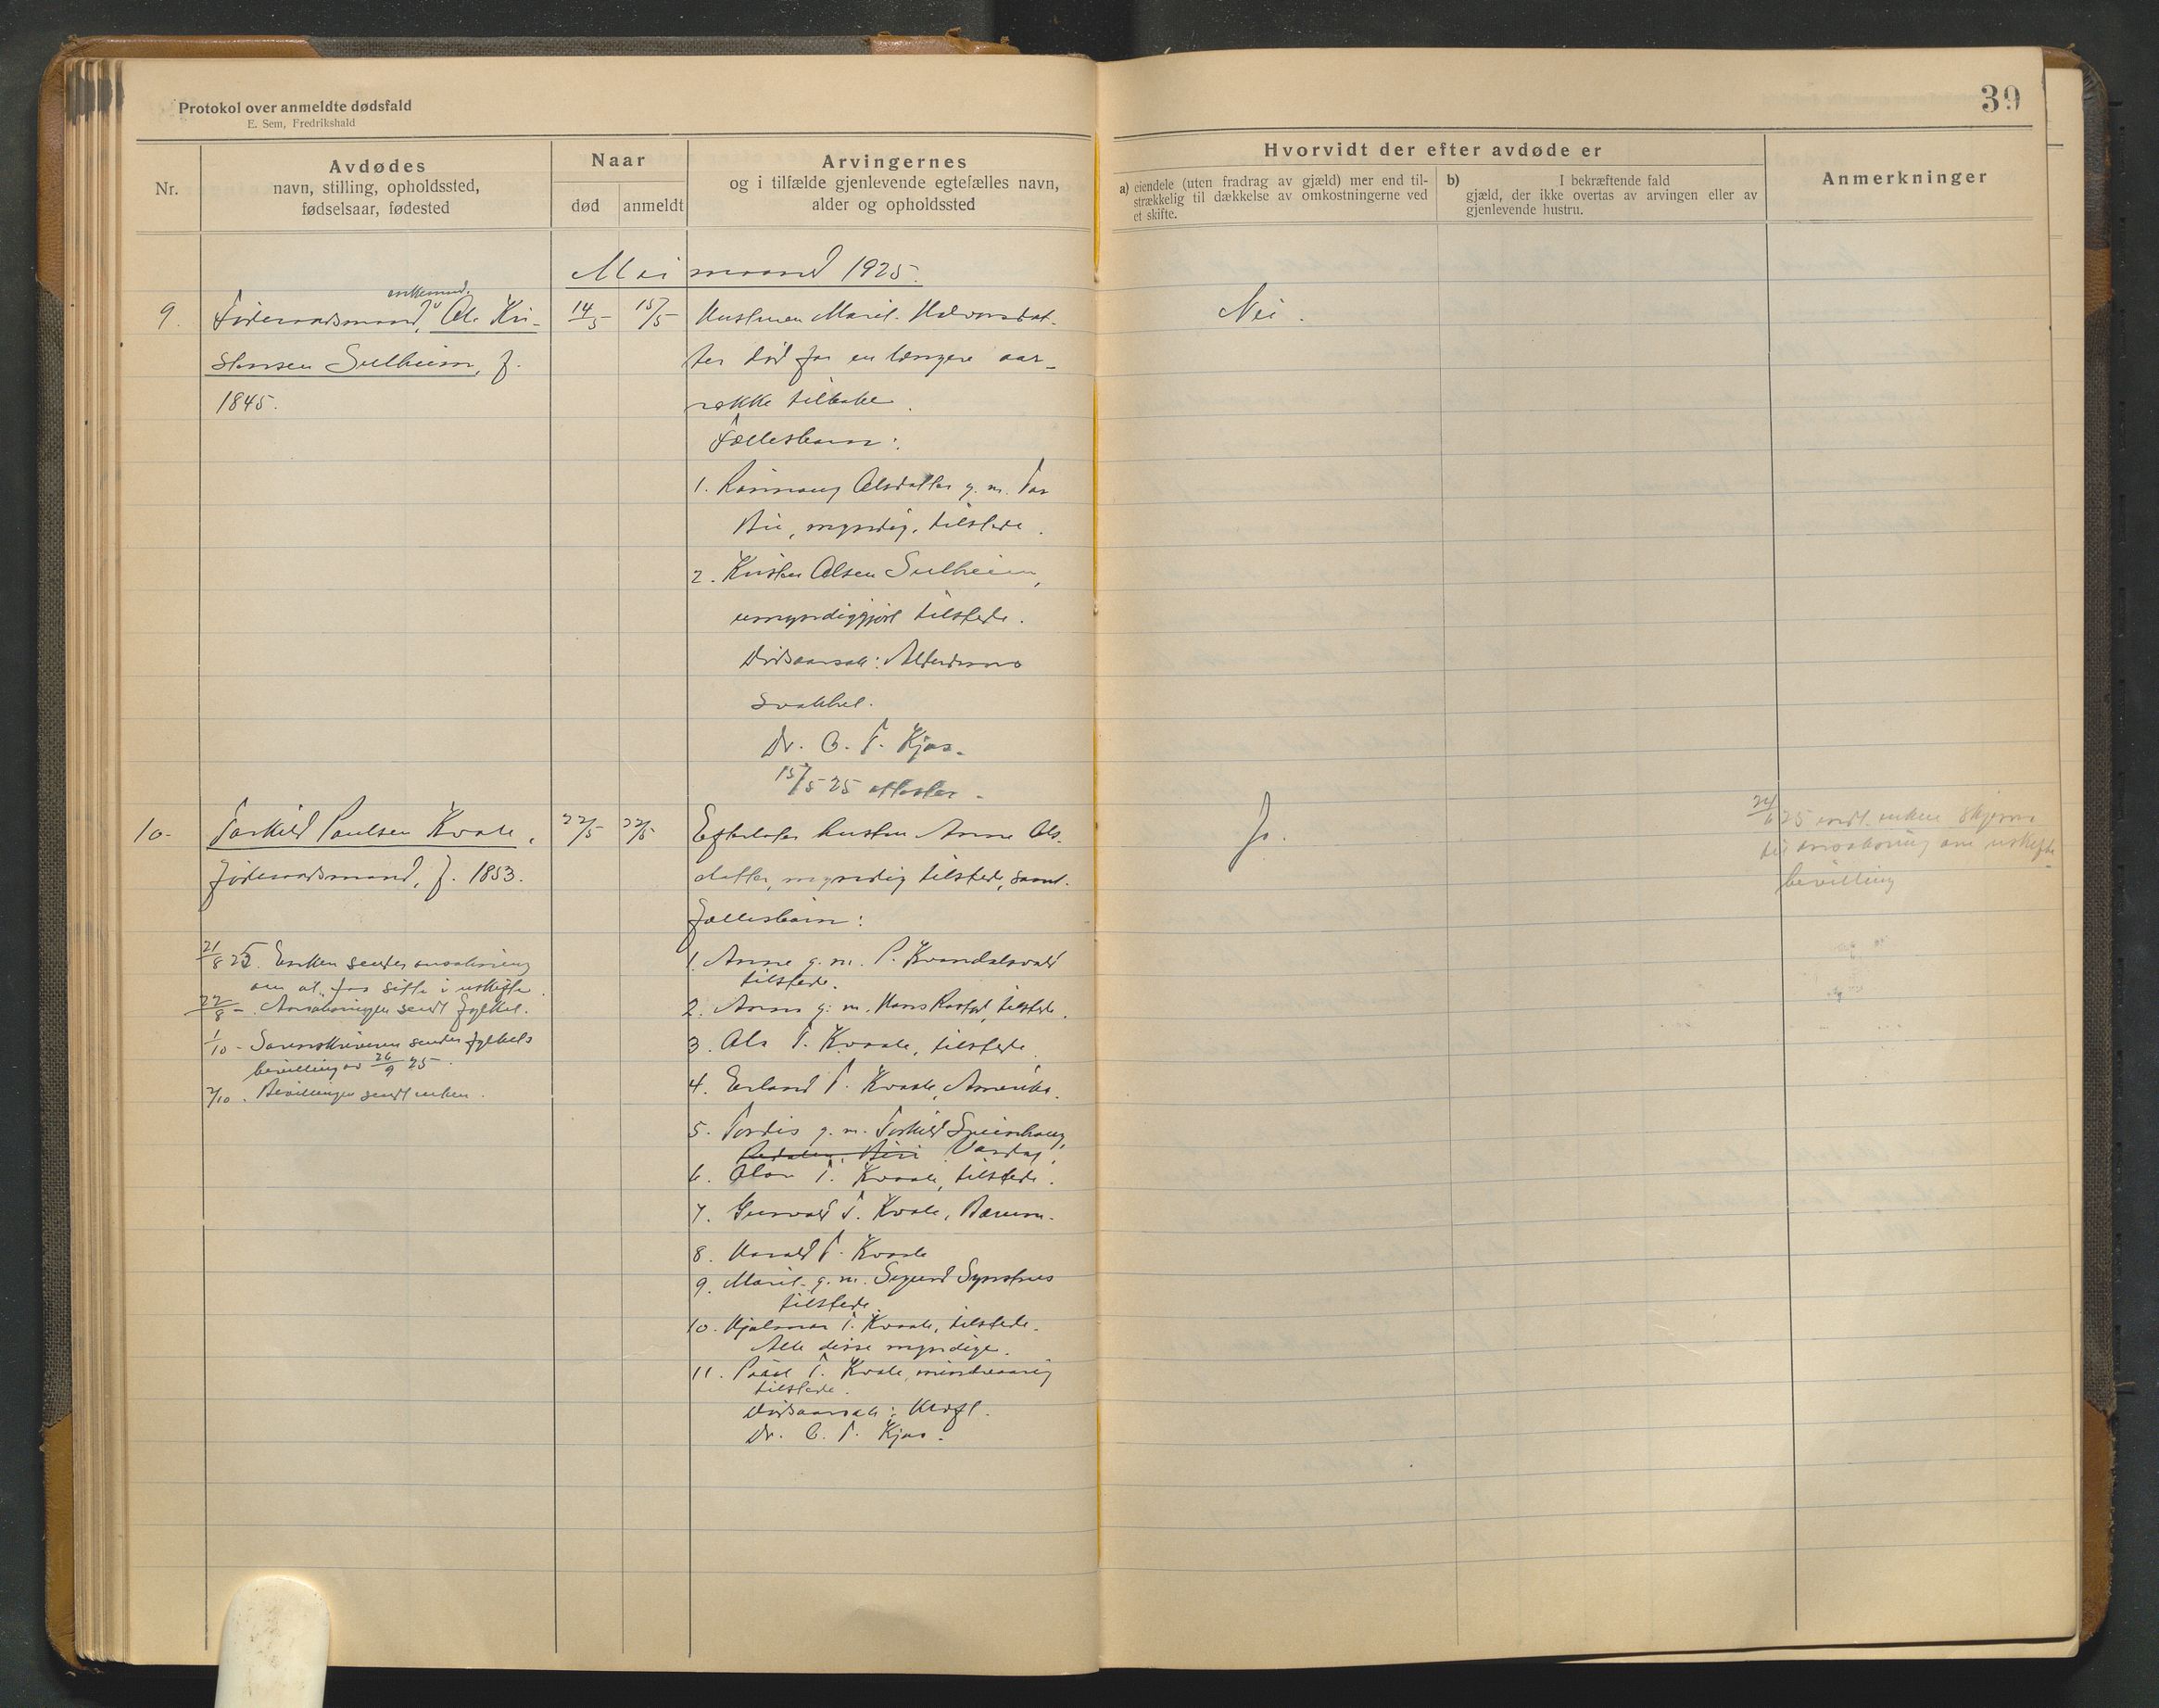 Protokol over anmeldte dødsfald
E. Sem, Fredrikshald
39
Nr.
Avdødes
navn, stilling, opholdssted,
fødselsaar, fødested
Naar
død
anmeldt
Arvingernes
og i tilfælde gjenlevende egtefælles navn,
alder og opholdssted
Hvorvidt der efter avdøde er
a) eiendele (uten fradrag av gjæld) mer end til-
strækkelig til dækkelse av omkostningerne ved
et skifte.
b) I bekræftende fald
gjæld, der ikke overtas av arvingen eller av
gjenlevende hustru.
Anmerkninger
Mai maaned 1925.
enkemand,
9. Føderaadsmand, Ole Kri-
stensen Sulheim, f.
1845.
14/5
15/5
Hustruen Marit Halvorsdat-
ter død for en længere aar-
række tilbake.
Fællesbarn:
1. Rønnaug Olsdatter g. m. Tor
Bie, myndig, tilstede.
2. Kristen Olsen Sulheim,
umyndiggjort tilstede.
Dødsaarsak: Alderdoms
svakhet.
Dr. C. T. Kjos.
15/5 25 attester.
Nei.
10. Torkild Paulsen Kvale,
føderaadsmand, f. 1853.
22/5
22/5
Efterlater hustru Anne Ols-
datter, myndig tilstede, samt
fællesbarn:
1. Anne g. m. P. Kvandalsvold
tilstede.
2. Anna g. m. Hans tilstede.
3. Ola T. Kvaale, tilstede.
4. Erland T. Kvaale, Amerika.
5. Tordis g. m. Torkild
Biri Vardal,
6. Olav T. Kvaale, tilstede.
7. Gunvald T. Kvale, Bærum.
8. Harald T. Kvaale
9. Marit g. m. Sigurd Synstnes
tilstede.
10. Hjalmar T. Kvaale, tilstede.
Alle disse myndige.
11. Paaal T. Kvale, mindreaarig
tilstede.
Dødsaarsak: Kræft.
Dr. C. T. Kjos.
Jo.
24/6 25 sendt enken skjema
til ansøkning om uskifte
bevilling
21/8 25. Enken sender ansøkning
om at faa sitte i uskifte.
22/8 - Ansøkningen sendt fylket.
1/10 - Sorenskriveren sender fylkets
bevilling av 26/9 25.
2/10. Bevillingen sendt enken.